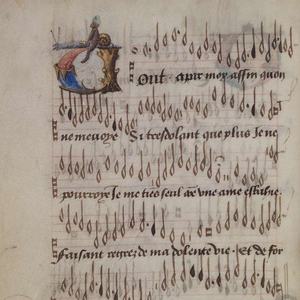 Tout a par moy affin quon
ne me voye Si tresdolant que plus Je ne
pourroye Je me tiens seul as vne ame estaine
Faisant regrez de ma dolente vie Et de for